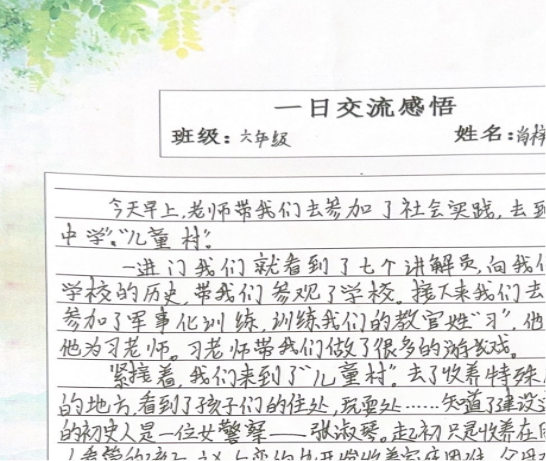 一日交流感悟
班级：六年级 姓名：肖梓
今天早上，老师带我们去参加了社会实践，去到
中学"、"儿童村"。
一进门我们就看到了七个讲解员，向我们
学校的历史，带我们参观了学校。接下来我们去
参加了军事化训练，训练我们的教官姓"习"，他
他为习老师。习老师带我们做了很多的游戏。
紧接着，我们来到了"儿童村"。去了收养特殊
的地方，看到了孩子们的住处，玩耍处……知道了建设这
的初史人是一位女警察——张淑琴。起初只是收养在